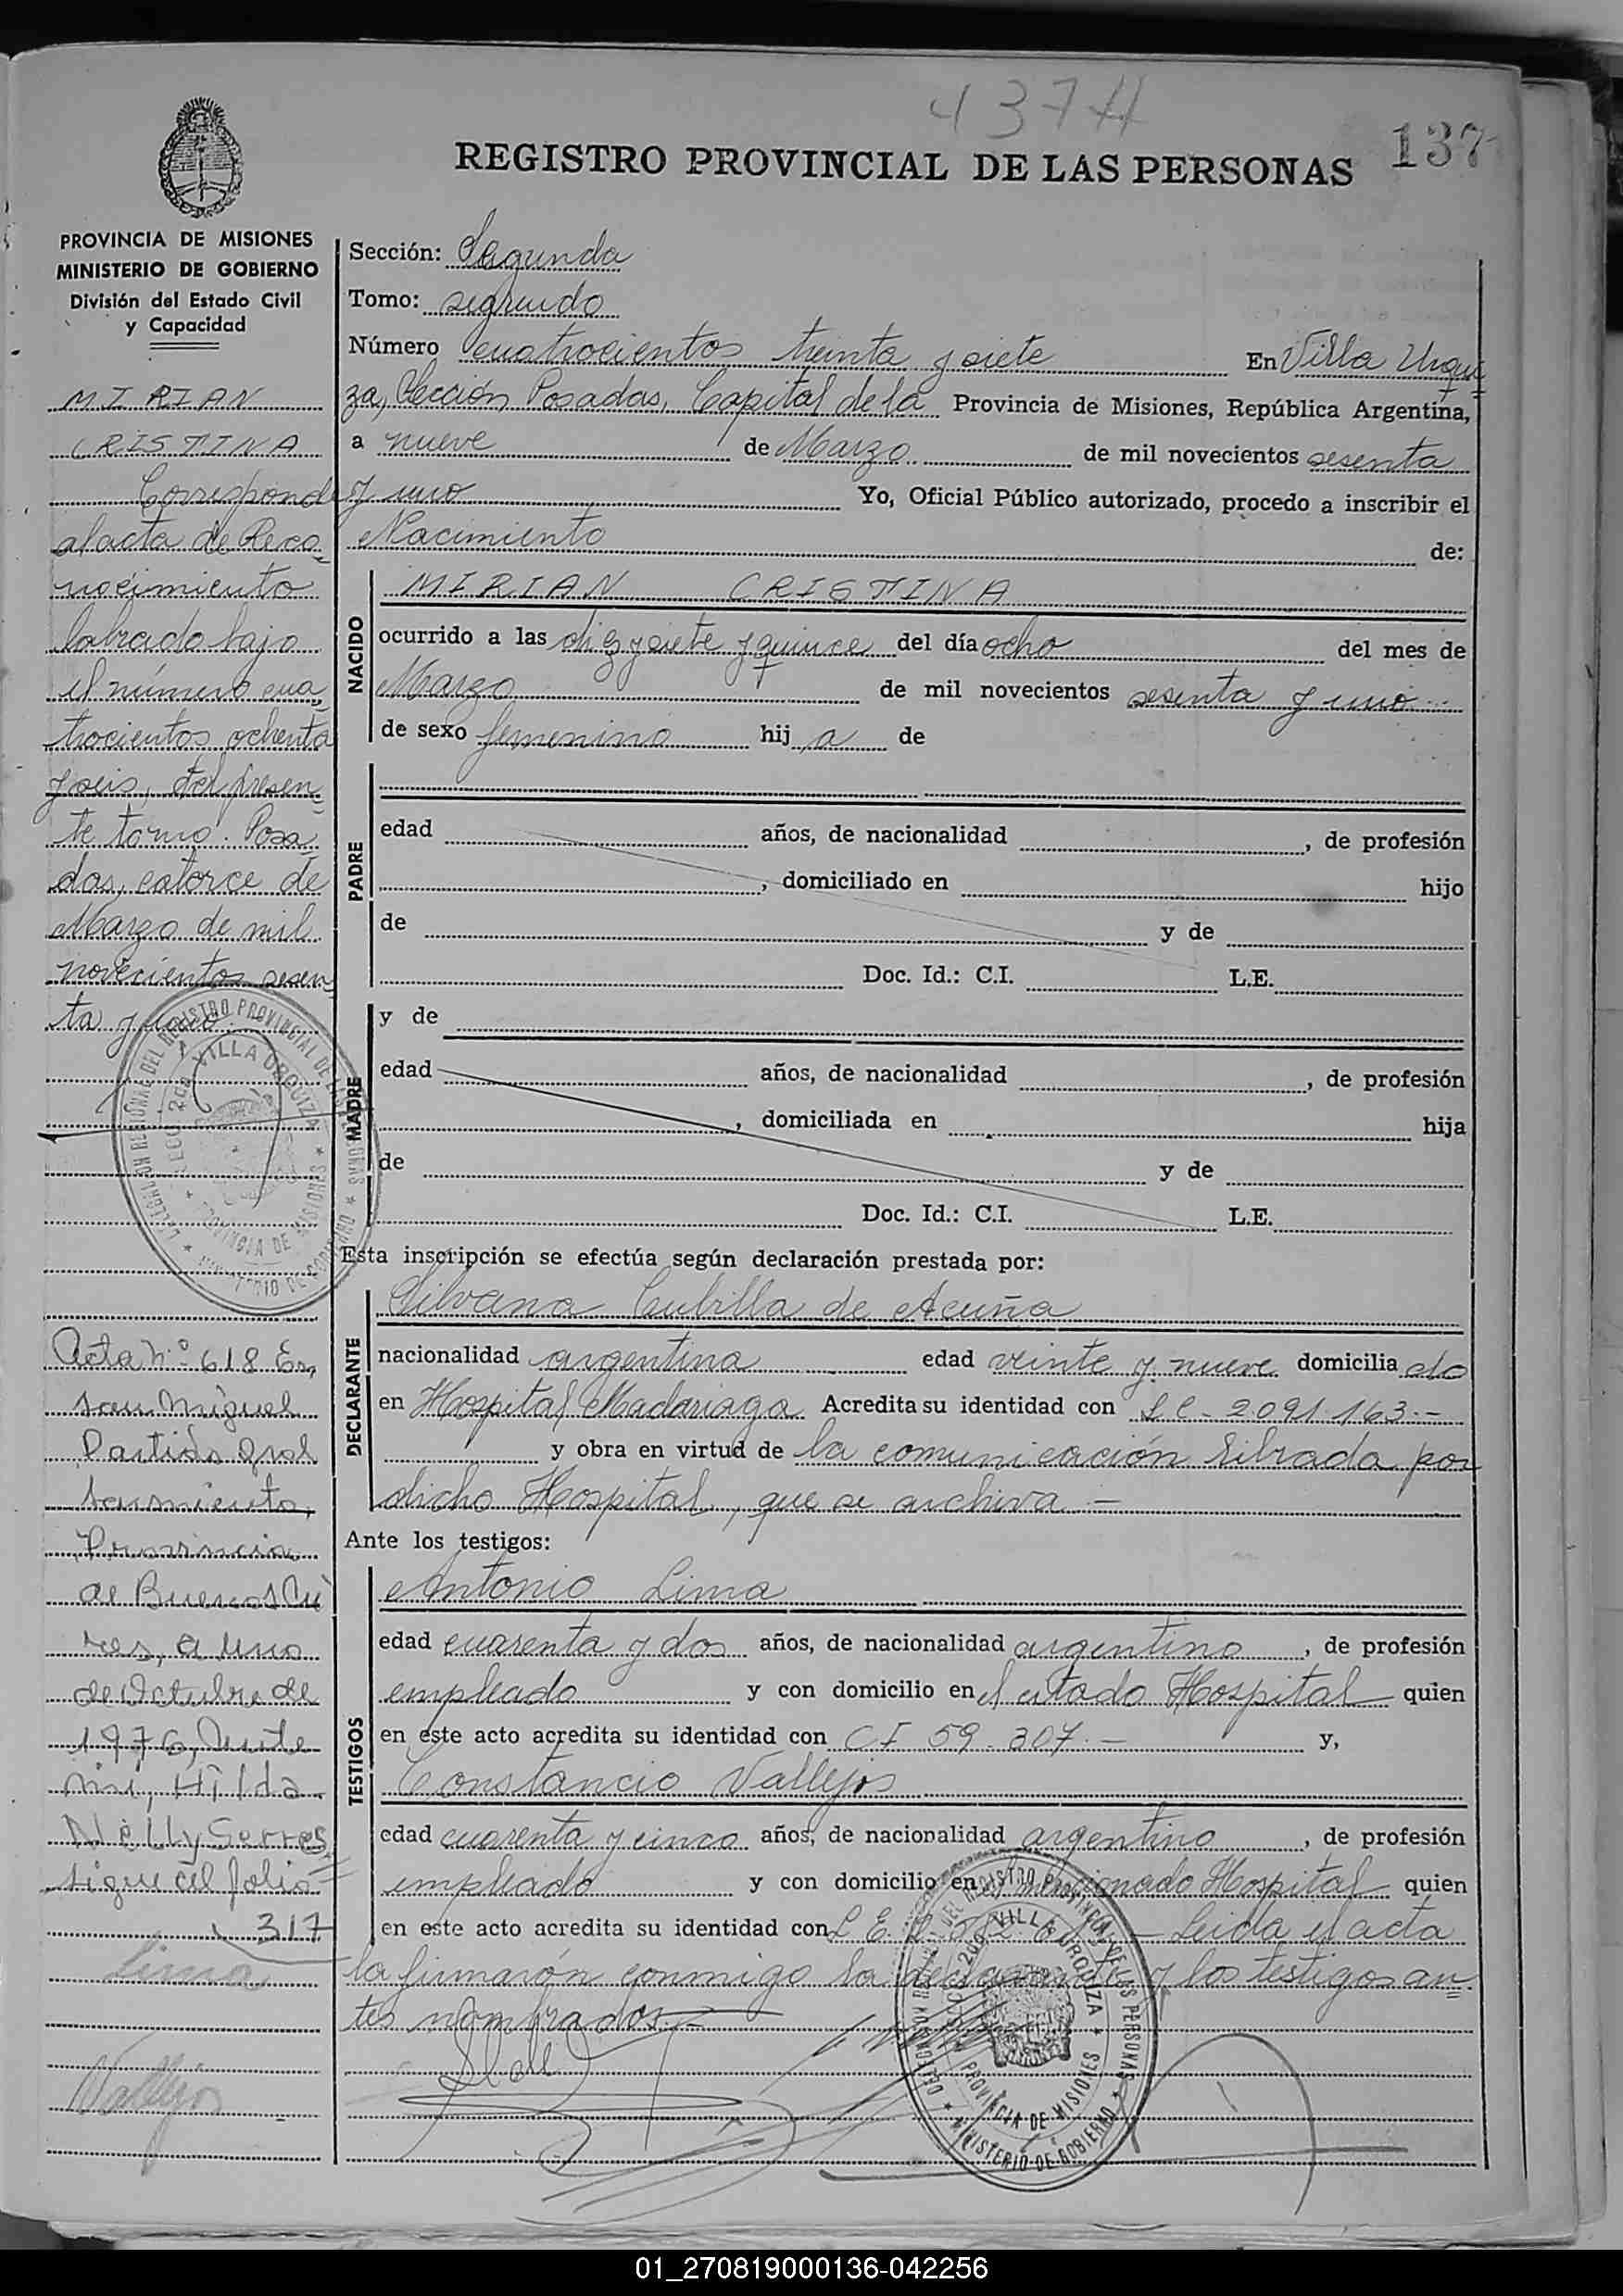 437 H
137
REGISTRO PROVINCIAL DE LAS PERSONAS
PROVINCIA DE MISIONES
MINISTERIO DE GOBIERNO
División del Estado Civil
y Capacidad
MIRIAN
CRISTINA
Corresponde
al acta de Reco=
nocimiento
labrado bajo
el número cua=
trocientos ochenta
y seis, del presen=
te tomo. Posa
das, catorce de
Marzo de mil
novecientos sesen=
ta y uno
Acta Nº 618 En
San Miguel
Partido Gral
Sarmiento,
Provincia
de Buenos Ai
res, a uno
de Octubre de
1976, Ante
mi, Hilda
Nelly Serres
sigue al folio
317
Lima
Vallejos
Sección: Segunda
Tomo: segundo
Número cuatrocientos treinta y siete En Villa Urqui=
za, Sección Posadas, Capital de la Provincia de Misiones, República Argentina,
a nueve de Marzo de mil novecientos sesenta
y uno Yo, Oficial Público autorizado, procedo a inscribir el
Nacimiento de:
NACIDO
MIRIAN CRISTINA
ocurrido a las diez y siete y quince del día ocho del mes de
Marzo de mil novecientos sesenta y uno
de sexo femenino hij a de
PADRE
edad años, de nacionalidad , de profesión
, domiciliado en hijo
de y de
Doc. Id.: C.I. L.E.
MADRE
y de
edad años, de nacionalidad , de profesión
, domiciliada en hija
de y de
Doc. Id.: C.I. L.E.
Esta inscripción se efectúa según declaración prestada por:
DECLARANTE
Silvana Cubilla de Acuña
nacionalidad argentina edad veinte y nueve domicilia do
en Hospital Madariaga Acredita su identidad con L C - 2091.163.-
y obra en virtud de la comunicación librada por
dicho Hospital, que se archiva -
Ante los testigos:
TESTIGOS
Antonio Lima
edad cuarenta y dos años, de nacionalidad argentino , de profesión
empleado y con domicilio en el citado Hospital quien
en este acto acredita su identidad con CI 59.307.- y,
Constancio Vallejos
edad cuarenta y cinco años, de nacionalidad argentino , de profesión
empleado y con domicilio en el mencionado Hospital quien
en este acto acredita su identidad con L E. - Leida el acta
la firmarón conmigo la declarante y los testigos an=
tes nombrados.-
DEL REGISTRO PROVINCIAL DE LAS PERSONAS
VILLA URQUIZA
PROVINCIA DE MISIONES
MINISTERIO DE GOBIERNO
01_270819000136-042256